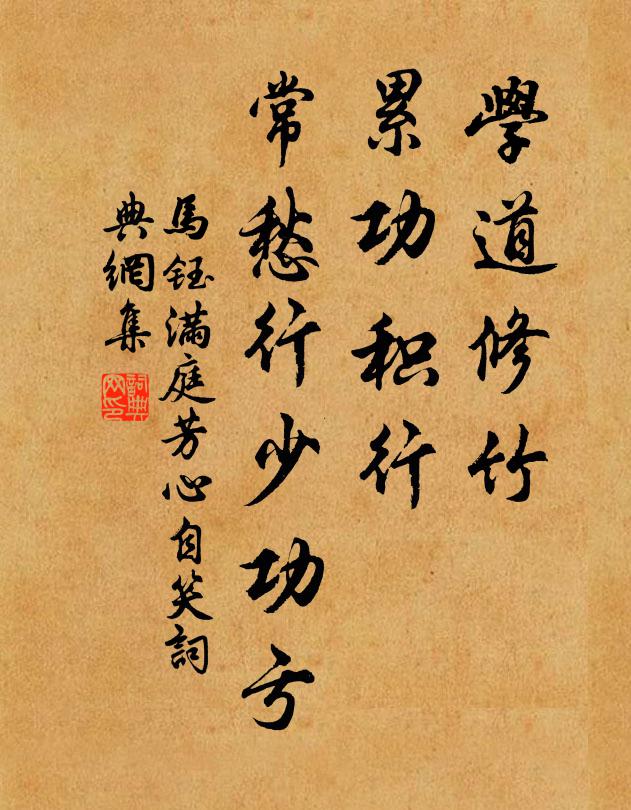 學道修竹
累功积行
常愁行少功亏
馬鈺满庭芳心自笑詞
典網集
詞典网印